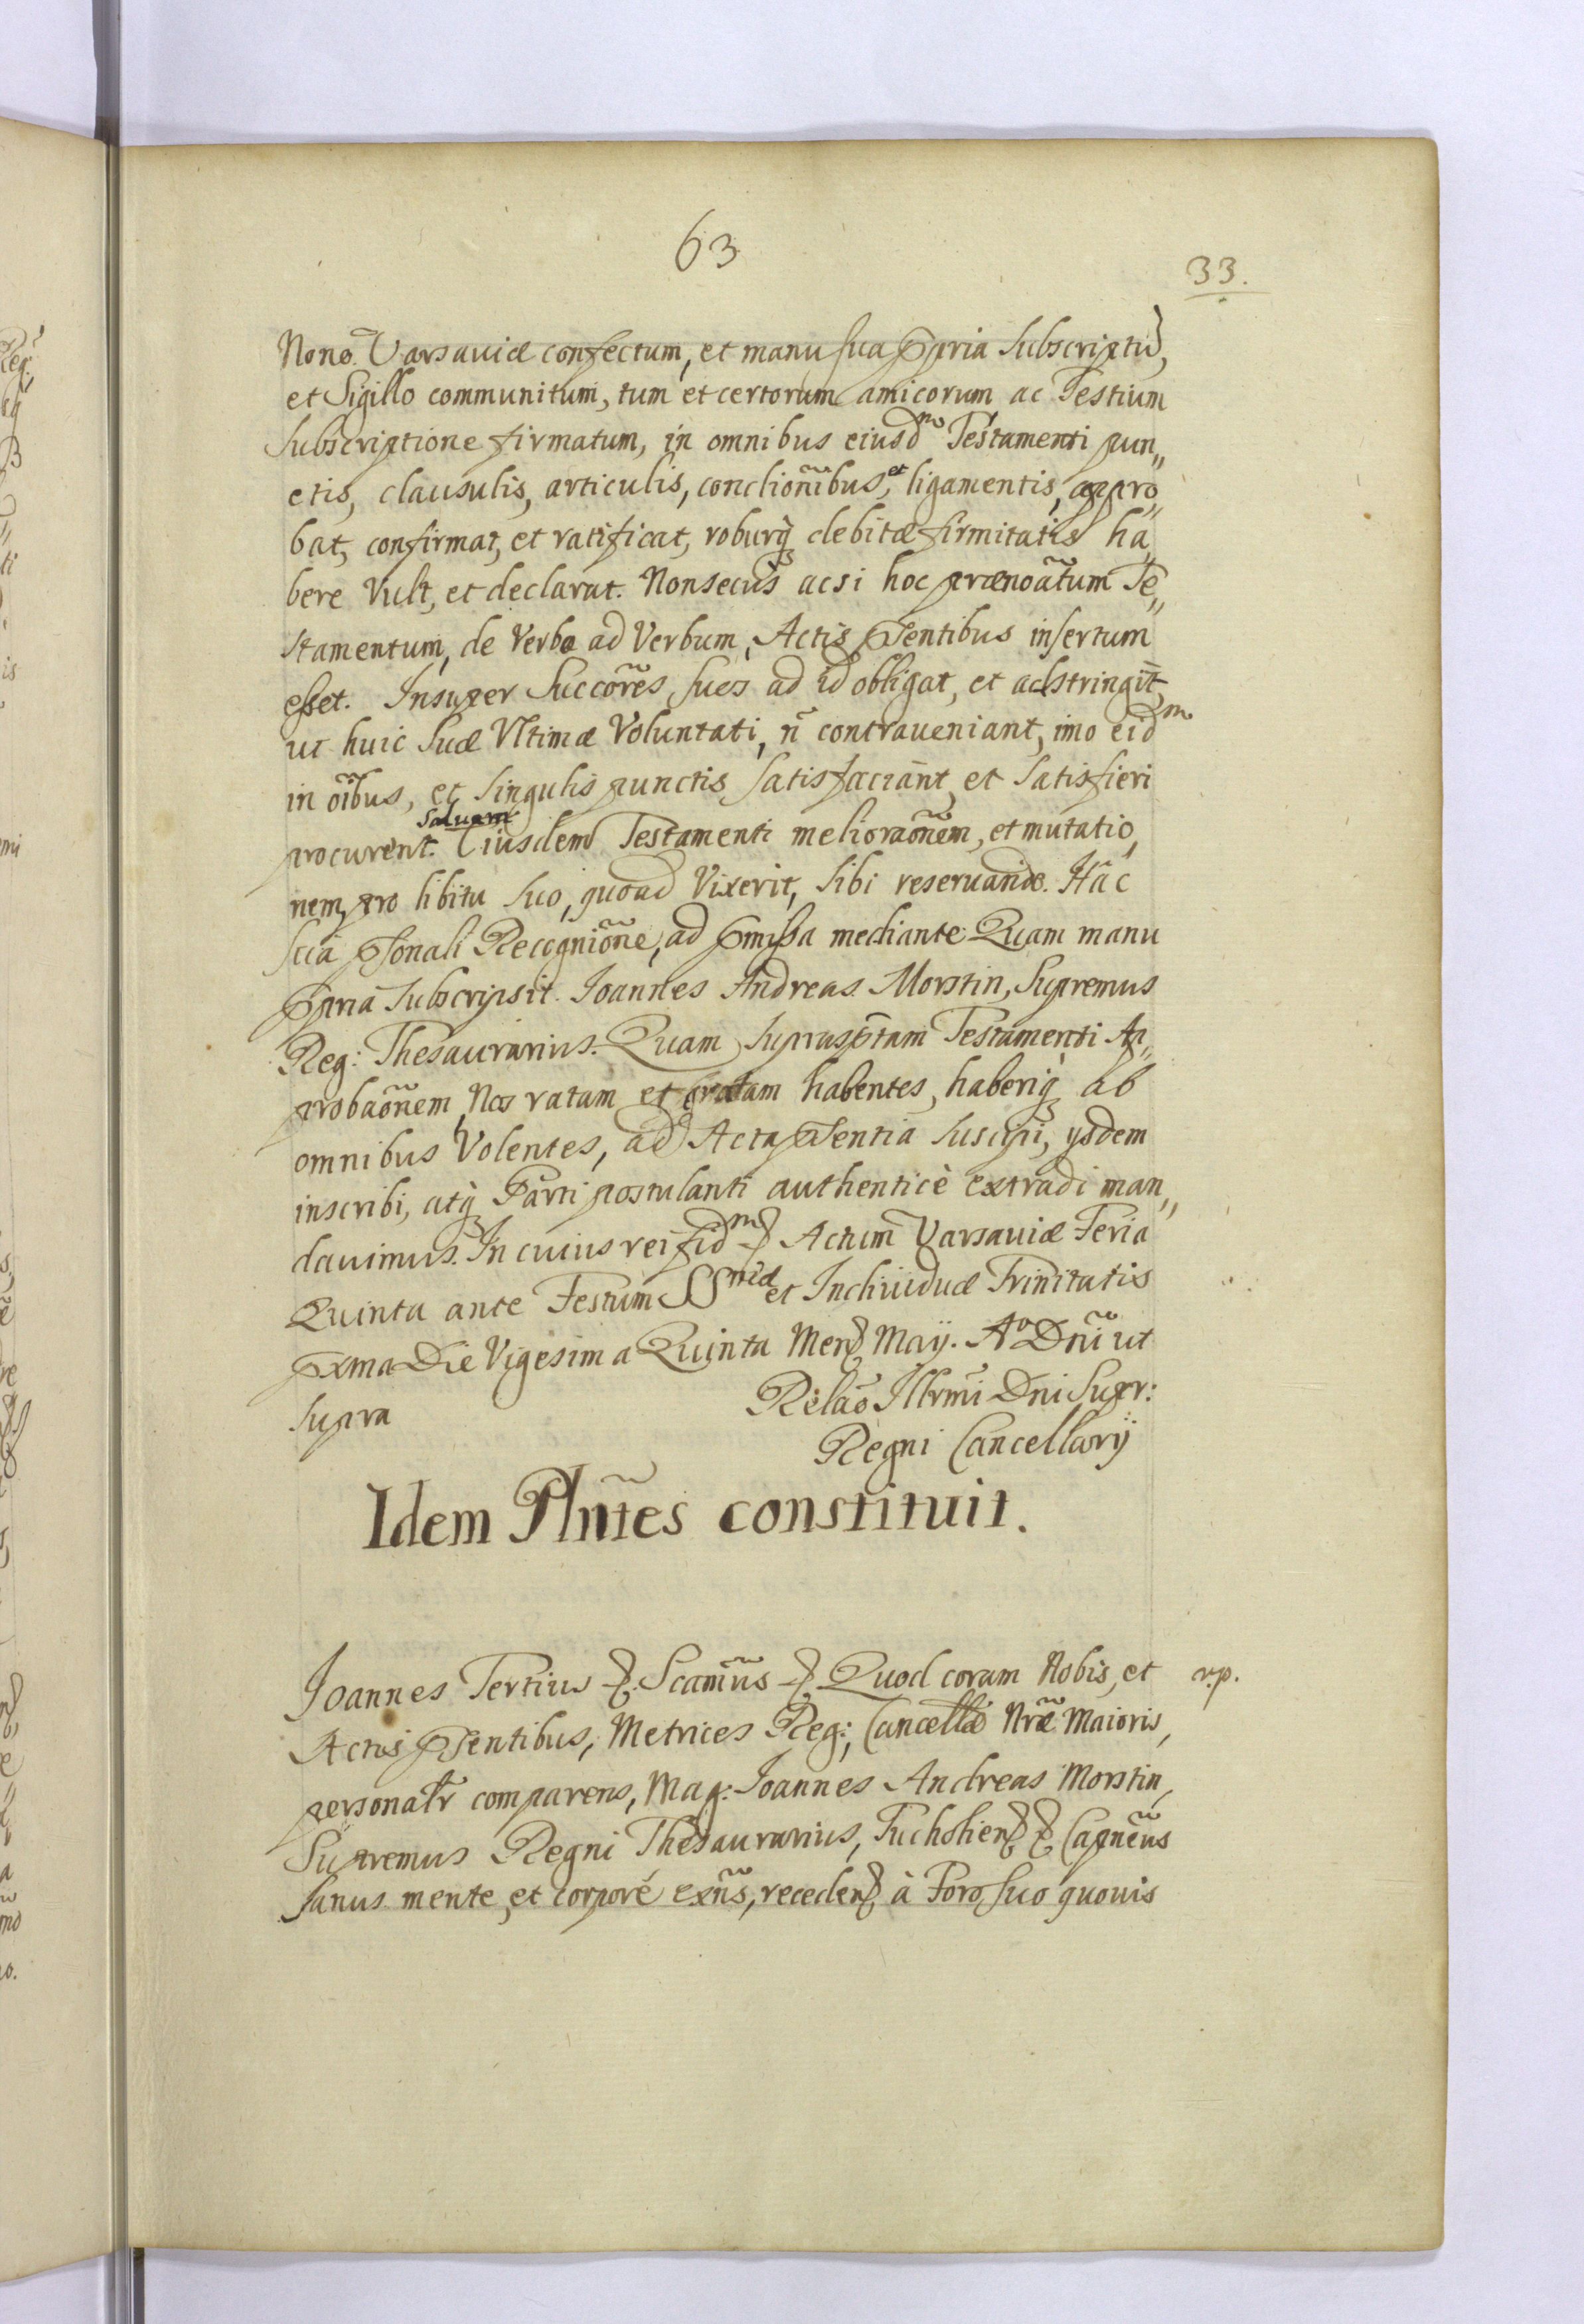 63
33.
Nono Varsaviæ confectum, et manu sua ppria subscriptũ,
et Sigillo communitum, tum et certorum amicorum ac Testium
subscriptione firmatum, in omnibus eiusdm Testamenti pun„
ctis, clausulis, articulis, condionĩbus, et ligamentis, appro„
bat, confirmat, et ratificat, roburq̃ debitæ firmitatis ha„
bere Vult, et declarat. Nonsecus acsi hoc prænoãtum Te„
stamentum, de Verbo ad Verbum, Actis pñtibus insertum
esset. Insuper Succõres suos ad id obligat, et adstringit,
ut huic suæ Vltimæ Voluntati, ñ contraveniant, imo eidm
in oĩbus, et singulis punctis satisfaciant, et satisfieri
procurent. Salvam Eiusdem Testamenti melioraõnem, et mutatio„
nem, pro libitu suo, quoad Vixerit, sibi reservando. Hãc
sua psonali Recogniõne, ad pmissa mediante Quam manu
ppria subscripsit. Joannes Andreas Morstin, Supremus
Reg: Thesaurarius. Quam suprascptam Testamenti Ap„
probaõnem, Nos ratam et gratam habentes, haberiq̃ ab
omnibus Volentes, ad Acta psentia suscipi, ysdem
inscribi, atq̃ Parti postulanti authenticè extradi man„
davimus. In cuius rei fidm &. Actum Varsaviæ Feria
Quinta ante Festum SSmæ et Individuæ Trinitatis
pxma Die Vigesima Quinta Mens May. Ao Dñi ut
supra
Relaõ Illrmi Dni Supr:
Regni Cancellarÿ
Idem Plñtes constituit.
Joannes Tertius &. Scamũs &. Quod coram Nobis, et
r.p.
Actis psentibus, Metrices Reg:, Cancellæ Nræ Maioris,
personalr comparens, Mag: Joannes Andreas Morstin,
Supremus Regni Thesaurarius, Tucholiens & Capnẽus
sanus mente, et corpore exñs, recedens à Foro suo quovis